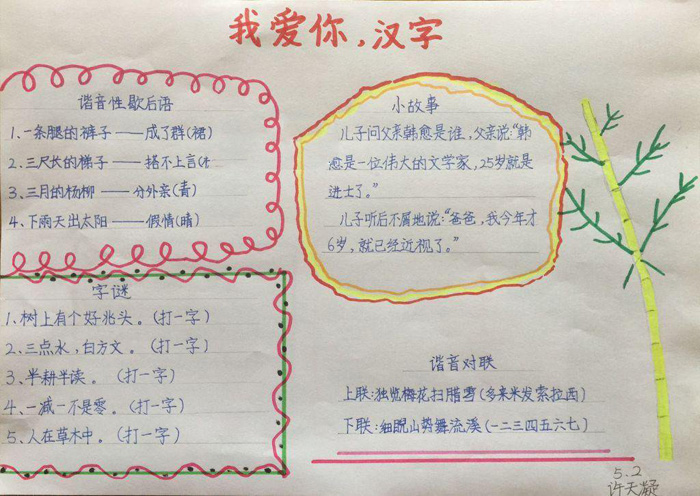 我爱你，汉字
谐音性歇后语
1、一条腿的裤子——成了群(裙)
2、三尺长的梯子——搭不上言(
3、三月的杨柳——分外亲(青)
4、下雨天出太阳——假情(晴)
小故事
儿子问父亲韩愈是谁，父亲说：“韩
愈是一位伟大的文学家，25岁就是
进士了。”
儿子听后不屑地说：“爸爸，我今年才
6岁，就已经近视了。”
字谜
1、树上有个好兆头。(打一字)
2、三点水，白方文。(打一字)
3、半耕半读。(打一字)
4、一减一不是零。(打一字)
5、人在草木中。(打一字)
谐音对联
上联：独览梅花扫腊雪(多来米发索拉西)
下联：细睨山势舞流溪(一二三四五六七)
5.2
许天凝